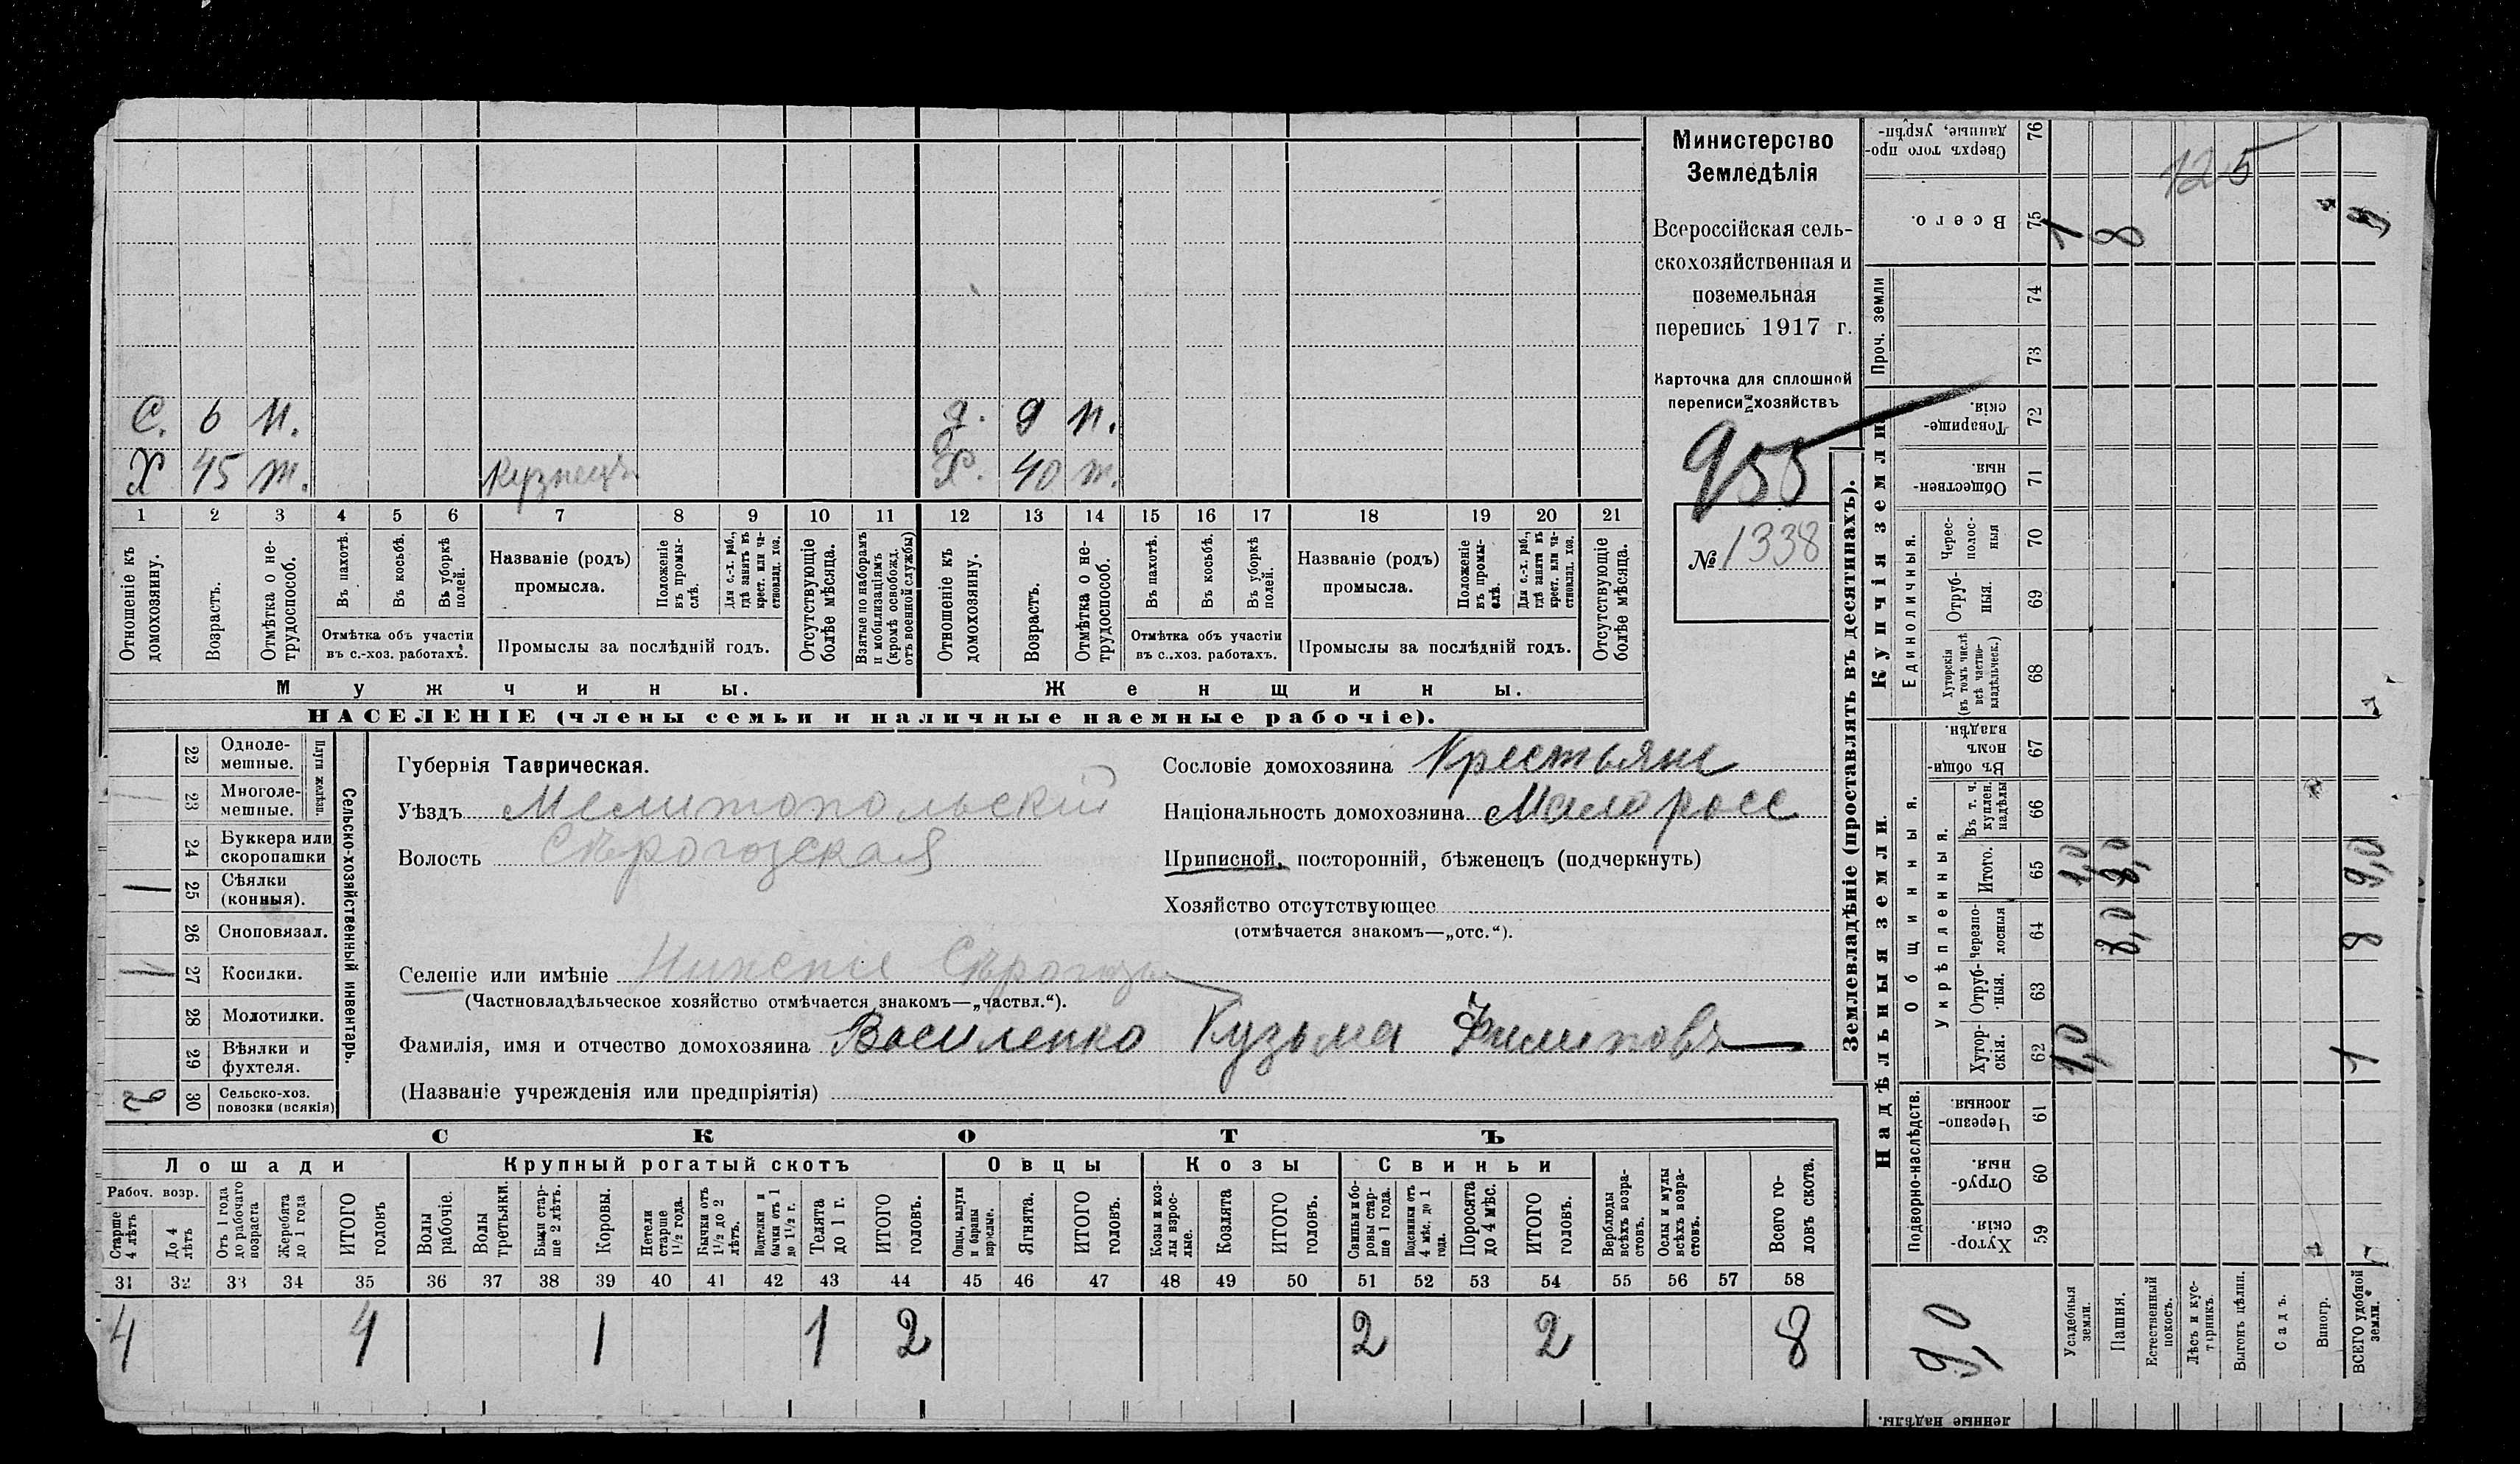 С. 6 н. д. 9 н.
Х 45 т. Кузнецъ Х. 40 т.
1 2 3 4 5 6 7 8 9 10 11 12 13 14 15 16 17 18 19 20 21
Отношеніе къ домохозяину.
Возрастъ.
Отмѣтка о нетрудоспособ.
Въ пахотѣ.
Въ косьбѣ.
Въ уборкѣ полей.
Отмѣтка объ участіи
въ с.-хоз. работахъ.
Названіе (родъ)
промысла.
Положеніе въ промыслѣ.
Для с.-х. раб., гдѣ занятъ въ крест. или частновлад. хоз.
Промыслы за послѣдній годъ.
Отсутствующіе болѣе мѣсяца.
Взятые по наборамъ и мобилизаціямъ (кромѣ освобожд. отъ военной службы)
Отношеніе къ домохозяину.
Возрастъ.
Отмѣтка о нетрудоспособ.
Въ пахотѣ.
Въ косьбѣ.
Въ уборкѣ полей.
Отмѣтка объ участіи
въ с.-хоз. работахъ.
Названіе (родъ)
промысла.
Положеніе въ промыслѣ.
Для с.-х. раб., гдѣ занятъ въ крест. или частновлад. хоз.
Промыслы за послѣдній годъ.
Отсутствующіе болѣе мѣсяца.
Мужчины. Женщины.
НАСЕЛЕНІЕ (члены семьи и наличные наемные рабочіе).
Министерство
Земледѣлія
Всероссійская сель-
скохозяйственная и
поземельная
перепись 1917 г.
Карточка для сплошной
переписи хозяйствъ
955
№ 1338
Сельско-хозяйственный инвентарь.
Плуги желѣзн.
22 Одноле-
мешные.
23 Многоле-
мешные.
24 Буккера или
скоропашки
1 25 Сѣялки
(конныя).
26 Сноповязал.
1 27 Косилки.
28 Молотилки.
29 Вѣялки и
фухтеля.
2 30 Сельско-хоз.
повозки (всякія)
Губернія Таврическая.
Уѣздъ Мелитопольскій
Волость Сѣрогозская
Селеніе или имѣніе Нижніе Сѣрогозы
(Частновладѣльческое хозяйство отмѣчается знакомъ—„частвл.“).
Фамилія, имя и отчество домохозяина Василенко Кузьма Филиповъ
(Названіе учрежденія или предпріятія)
Сословіе домохозяина Крестьяне
Національность домохозяина Малоросс
Приписной, посторонній, бѣженецъ (подчеркнуть)
Хозяйство отсутствующее
(отмѣчается знакомъ—„отс.“).
СКОТЪ
Лошади Крупный рогатый скотъ Овцы Козы Свиньи
Рабоч. возр.
Старше 4 лѣтъ
До 4 лѣтъ
Отъ 1 года до рабочаго возраста
Жеребята до 1 года
ИТОГО головъ
Волы рабочіе.
Волы третьяки.
Быки старше 2 лѣтъ.
Коровы.
Нетели старше 1½ года.
Бычки отъ 1½ до 2 лѣтъ.
Подтелки и бычки отъ 1 до 1½ г.
Телята до 1 г.
ИТОГО головъ.
Овцы, валухи и бараны взрослые.
Ягнята.
ИТОГО головъ.
Козы и козлы взрослые.
Козлята
ИТОГО головъ.
Свиньи и боровы старше 1 года.
Подсвинки отъ 4 мѣс. до 1 года.
Поросята до 4 мѣс.
ИТОГО головъ.
Верблюды всѣхъ возрастовъ.
Ослы и мулы всѣхъ возрастовъ.
Всего головъ скота.
31 32 33 34 35 36 37 38 39 40 41 42 43 44 45 46 47 48 49 50 51 52 53 54 55 56 57 58
4 4 1 1 2 2 2 8
Землевладѣніе (проставлять въ десятинахъ).
Надѣльныя земли.
Купчія земли
Проч. земли
Сверхъ того проданные, укрѣп-
ленные надѣлы.
76
Всего.
75 1 8 9
125
74
73
Товарищескія.
72
Общественныя.
71
Единоличныя.
Чересполосныя
70
Отрубныя.
69
Хуторскія (въ томъ числѣ всѣ частновладѣльческ.)
68
Общинныя.
Въ общинномъ владѣн.
67
Укрѣпленныя.
Въ т. ч. куплен. надѣлы
66
Итого.
65 1,0 8,0 9,0
Черезполосныя
64 8,0 8
Отрубныя.
63
Хуторскія.
62 1,0 1
Подворно-наслѣдств.
Черезполосныя.
61
Отрубныя.
60
Хуторскія
59
9,0
Усадебныя земли.
Пашня.
Естественный покосъ.
Лѣсъ и кустарникъ.
Выгонъ цѣлин.
Садъ.
Виногр.
ВСЕГО удобной земли.